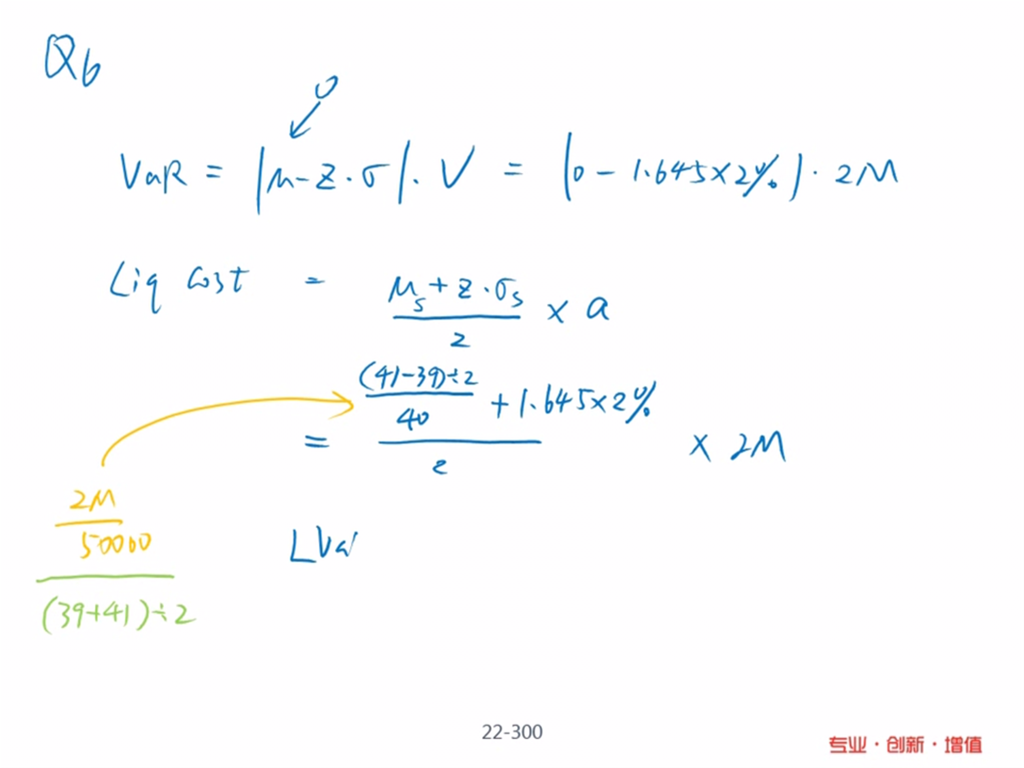 Q6
0
VaR = |μ-z·σ|·V = |0-1.645×2%|·2M
Liq Cost = (μs+z·σs)/2 × a
= ((41-39)÷2/40 + 1.645×2%)/2 × 2M
2M
50000
(39+41)÷2
LVa
22-300
专业·创新·增值